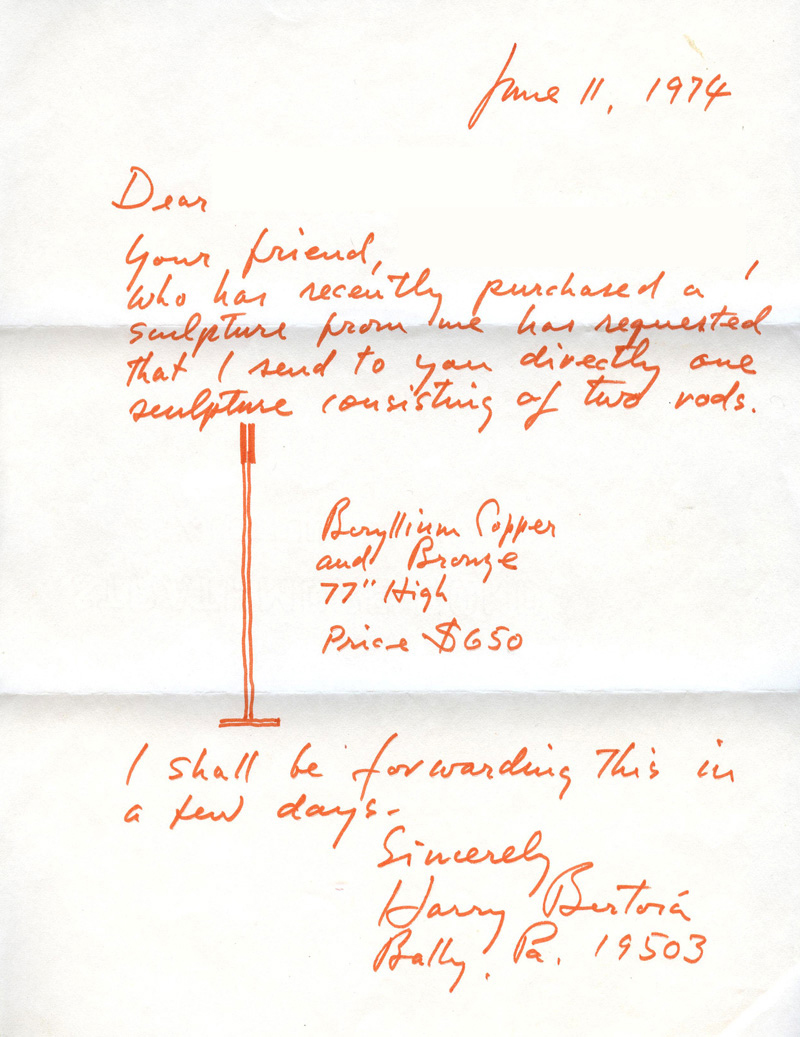 June 11, 1974
Dear
Your friend,
who has recently purchased a
sculpture from me has requested
that I send to you directly one
sculpture consisting of two rods.
Beryllium Copper
and Bronze
77" High
Price $650
I shall be forwarding this in
a few days-
Sincerely
Harry Bertoia
Bally, Pa. 19503